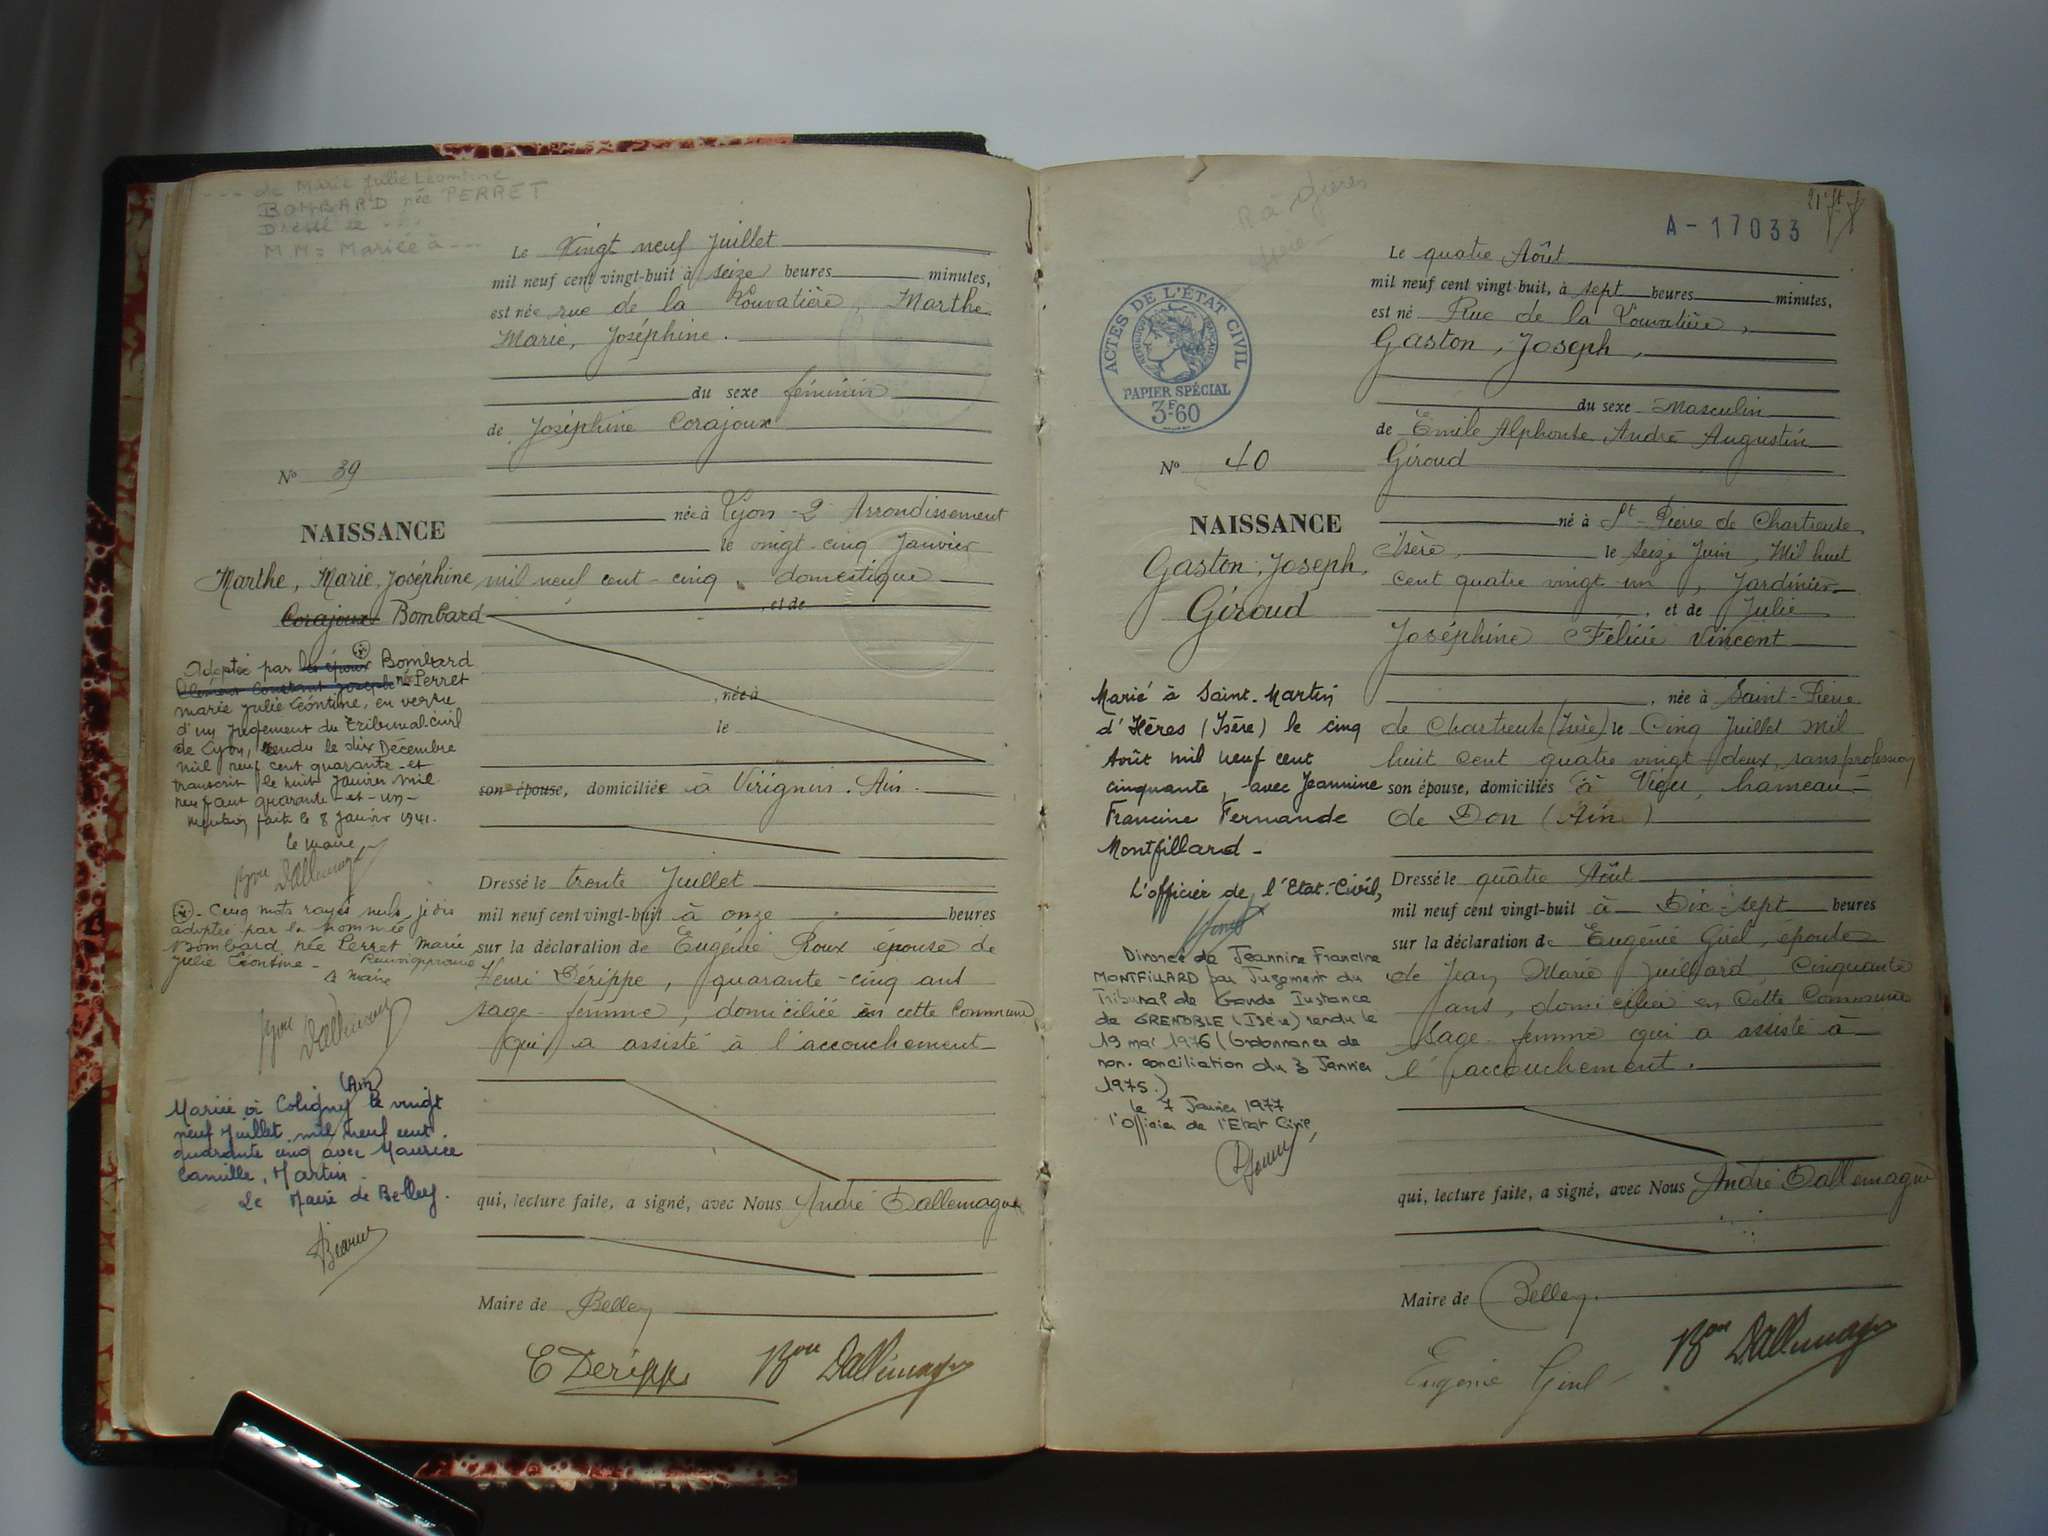 de Marie Julie Léontine
BOMBARD née PERRET
Dressé le ...
M M = Mariée à ---
Le Vingt neuf Juillet
mil neuf cent vingt-huit à seize heures minutes,
est née rue de la Louvatière, Marthe
Marie, Joséphine.
du sexe féminin
de Joséphine Corajoux
N° 39
née à Lyon 2 Arrondissement
NAISSANCE
le vingt-cinq Janvier
Marthe, Marie, Joséphine
mil neuf cent-cinq, domestique
Corajoux Bombard
, et de
Adoptée par les époux Bombard
Clément Constant Joseph née Perret
marie Julie Léontine, en vertu
d'un jugement du tribunal civil
de Lyon, rendu le dix Décembre
mil neuf cent quarante et
transcrit le huit Janvier mil
neuf cent quarante-et-un-
Mention faite le 8 Janvier 1941.
le maire
Bon Dallemagne
, née à
le
son épouse, domiciliée à Virignin. Ain.
Dressé le trente Juillet
mil neuf cent vingt-huit à onze heures
sur la déclaration de Eugénie Roux épouse de
Henri Dérippe, quarante-cinq ans
sage-femme, domiciliée en cette Commune
qui a assisté à l'accouchement
- Cinq mots rayés nuls, je dis
adoptée par la nommée
Bombard née Perret Marie
Julie Léontine -
le Maire
Bon Dallemagne
(Ain)
Mariée à Coligny le vingt
neuf Juillet mil neuf cent
quarante cinq avec Maurice
Camille, Martin.
Le Maire de Belley.
qui, lecture faite, a signé, avec Nous André Dallemagne
Maire de Belley
E Derippe Bon Dallemagne
A-17033
Le quatre Août
mil neuf cent vingt-huit, à sept heures minutes,
est né Rue de la Louvatière,
Gaston, Joseph,
ACTES DE L'ÉTAT CIVIL
RÉPUBLIQUE FRANÇAISE
PAPIER SPÉCIAL
3F60
du sexe Masculin
de Emile Alphonse André Augustin
Giroud
N° 40
NAISSANCE
Gaston, Joseph,
Giroud
né à St-Pierre de Chartreuse
Isère, le seize Juin, Mil huit
cent quatre vingt un, Jardinier
, et de Julie
Joséphine Félicie Vincent
, née à Saint-Pierre
de Chartreuse (Isère) le Cinq Juillet mil
huit cent quatre vingt deux, sans profession
son épouse, domiciliés à Vieu, hameau
de Don (Ain)
Marié à Saint-Martin
d'Hères (Isère) le cinq
Août mil neuf cent
cinquante, avec Jeannine
Francine Fernande
Montfillard -
L'officier de l'Etat-Civil,
Divorcé de Jeannine Francine
MONTFILLARD par Jugement du
Tribunal de Grande Instance
de GRENOBLE (Isère) rendu le
19 mai 1976 (Ordonnance de
non-conciliation du 3 Janvier
1975.)
le 7 Janvier 1977
l'Officier de l'Etat Civil,
Dressé le quatre Août
mil neuf cent vingt-huit à Dix-sept heures
sur la déclaration de Eugénie Girel, épouse
de Jean Marie Juillard, Cinquante
ans, domiciliée en cette Commune
sage-femme qui a assisté à
l'accouchement.
qui, lecture faite, a signé, avec Nous André Dallemagne
Maire de Belley.
Eugénie Girel Bon Dallemagne